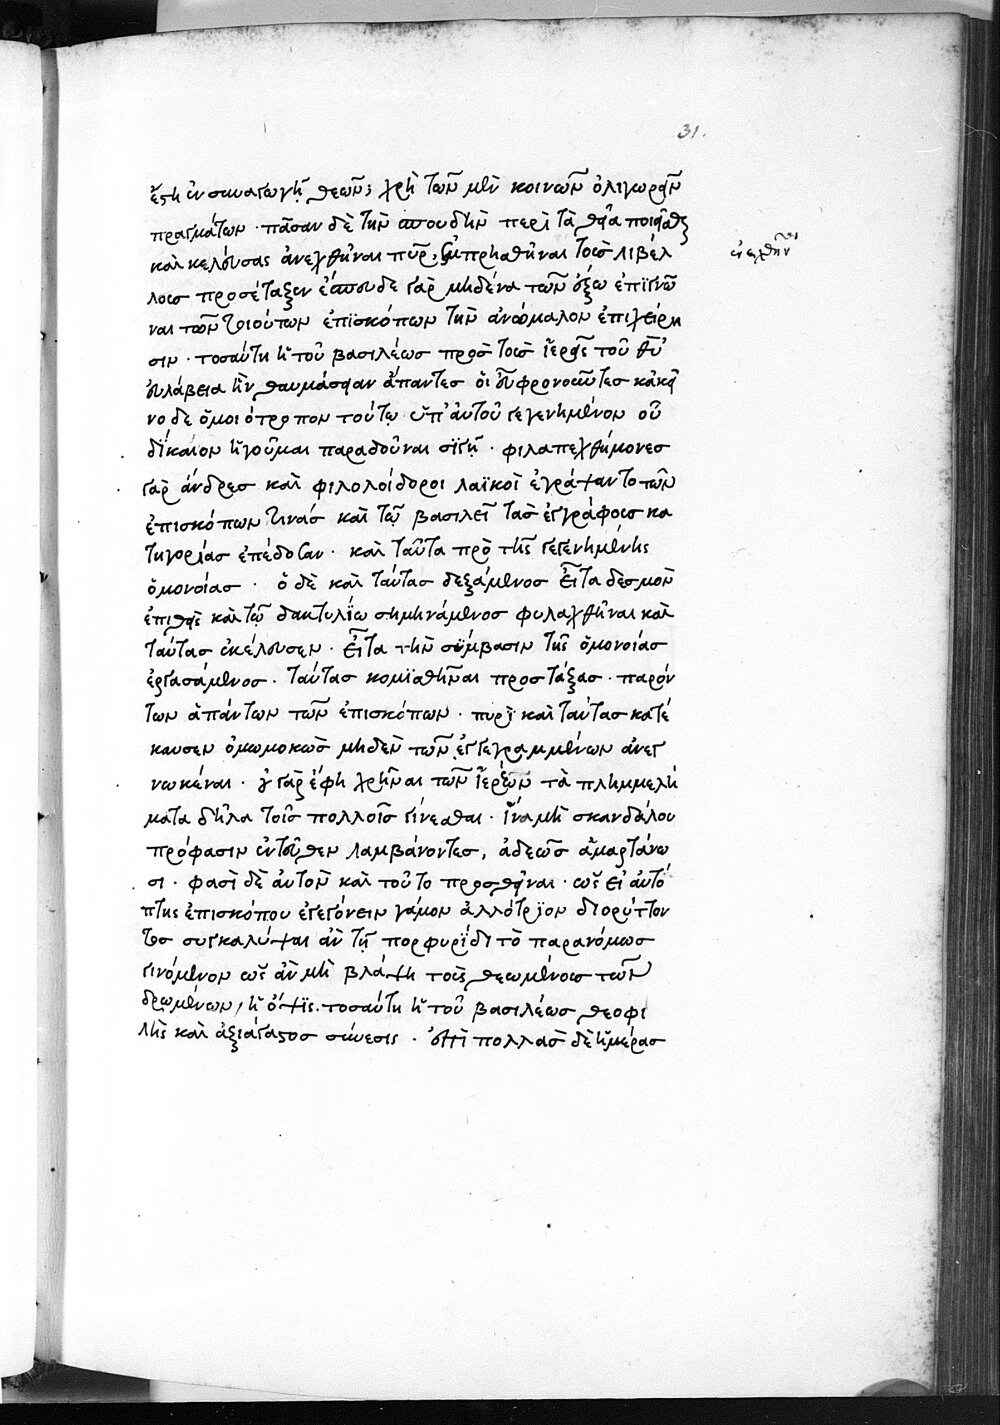 31.
ἔστη ἐν συναγωγῇ θεῶν; χρὴ τῶν μὲν κοινῶν ὀλιγωρεῖν
πραγμάτων · πᾶσαν δὲ τὴν σπουδὴν περὶ τὰ θεῖα ποιεῖσθαι
καὶ κελεύσας ἀνεχθῆναι πῦρ, ἐμπρησθῆναι τοὺς λιβέλ
λους προσέταξεν ἐσπουδε γὰρ μηδένα τῶν ἔξω ἐπιγνῶ
ναι τῶν τοιούτων ἐπϊσκόπων τὴν ἀνώμαλον ἐπιχείρη
σιν · τοσαύτη ἡ τοῦ βασιλέως πρὸς τοὺς ἱερεῖς τοῦ θῦ
εὐλάβεια ἣν θαυμάσειαν ἅπαντες οἱ εὖ φρονοῦντες κἀκεῖ
νο δε ὁμοιότροπον τούτῳ ὑπ' αὐτοῦ γεγενημένον οὐ
δίκαιον ἡγοῦμαι παραδοῦναι σϊγῇ · φιλαπεχθήμονες
γὰρ ἄνδρες καὶ φιλολοίδοροι λαϊκοὶ ἐγράψαντο τῶν
ἐπισκόπων τινάς καὶ τῷ βασιλεῖ τὰς ἐγγράφους κα
τηγορίας ἐπέδοσαν · καὶ ταῦτα πρὸ τῆς γεγενημένης
ὁμονοίας · ὁ δὲ καὶ ταύτας δεξάμενος εἶτα δεσμὸν
ἐπιθεὶς καὶ τῷ δακτυλΐω σημηνάμενος φυλαχθῆναι καὶ
ταύτας ἐκέλευσεν · εἶτα τὴν σύμβασιν τῆς ὁμονοίας
ἐργασάμενος · ταύτας κομϊσθῆναι προστάξας · παρόν
των ἁπάντων τῶν ἐπισκόπων · πυρὶ καὶ ταύτας κατέ
καυσεν ὀμωμοκὼς μηδὲν τῶν ἐγγεγραμμένων ἀνεγ
νωκέναι · οὐ γὰρ ἔφη χρῆναι τῶν ἱερέων τὰ πλημμελή
ματα δῆλα τοῖς πολλοῖς γίνεσθαι · ἵνα μὴ σκανδάλου
πρόφασιν ἐντεῦθεν λαμβάνοντες, ἀδεῶς ἁμαρτάνω
σι · φασὶ δὲ αὐτὸν καὶ τοῦτο προσθεῖναι · ὡς εἰ αὐτό
πτης ἐπισκόπου ἐγεγόνειν γάμον ἀλλότρϊον διορύττον
τος συγκαλύψαι ἂν τῇ πορφυρϊδι τὸ παρανόμως
γινόμενον ὡς ἂν μὴ βλάψη τοὺς θεωμένους τῶν
δρωμένων, ἡ ὄψϊς. τοσαύτη ἡ τοῦ βασιλέως θεοφι
λὴς καὶ ἀξιάγαστος σύνεσις · ἐπὶ πολλὰς δὲ ἡμέρας